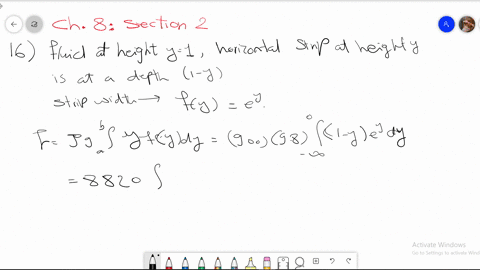 Ch. 8: Section 2
16) fluid at height y=1, horizontal strip at height y
is at a depth (1-y)
strip width → f(y) = e^y.
F = ρg ∫_a^b y f(y) dy = (900)(9.8) ∫_{-∞}^0 (1-y) e^y dy
= 8820 ∫
Activate Windows
Go to Settings to activate Windows.